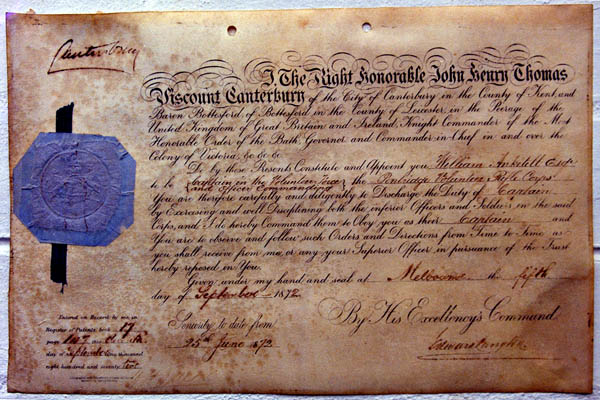 Canterbury
I, The Right Honorable John Henry Thomas
Viscount Canterbury of the City of Canterbury in the County of Kent, and
Baron Bottesford of Bottesford in the County of Leicester in the Peerage of the
United Kingdom of Great Britain and Ireland, Knight Commander of the Most
Honorable Order of the Bath, Governor and Commander-in-Chief in and over the
Colony of Victoria, &c &c &c
Do by these Presents Constitute and Appoint you William Esqr
to be Captain in the Volunteer Force, the Pentridge Volunteer Rifle Corps
and Officer Commanding
You are therefore carefully and diligently to Discharge the Duty of Captain
by Exercising and well Disciplining both the inferior Officers and Soldiers in the said
Corps, and I do hereby Command them to Obey you as their Captain and
You are to observe and follow such Orders and Directions from Time to Time as
you shall receive from me, or any your Superior Officer in pursuance of the Trust
hereby reposed in You.
Given under my hand and seal at Melbourne this fifth
day of September 1872.
By His Excellency's Command
Seniority to date from
25th June 1872
Entered on Record by me, in
Register of Patents, book 17
page
day of September One thousand
eight hundred and seventy two